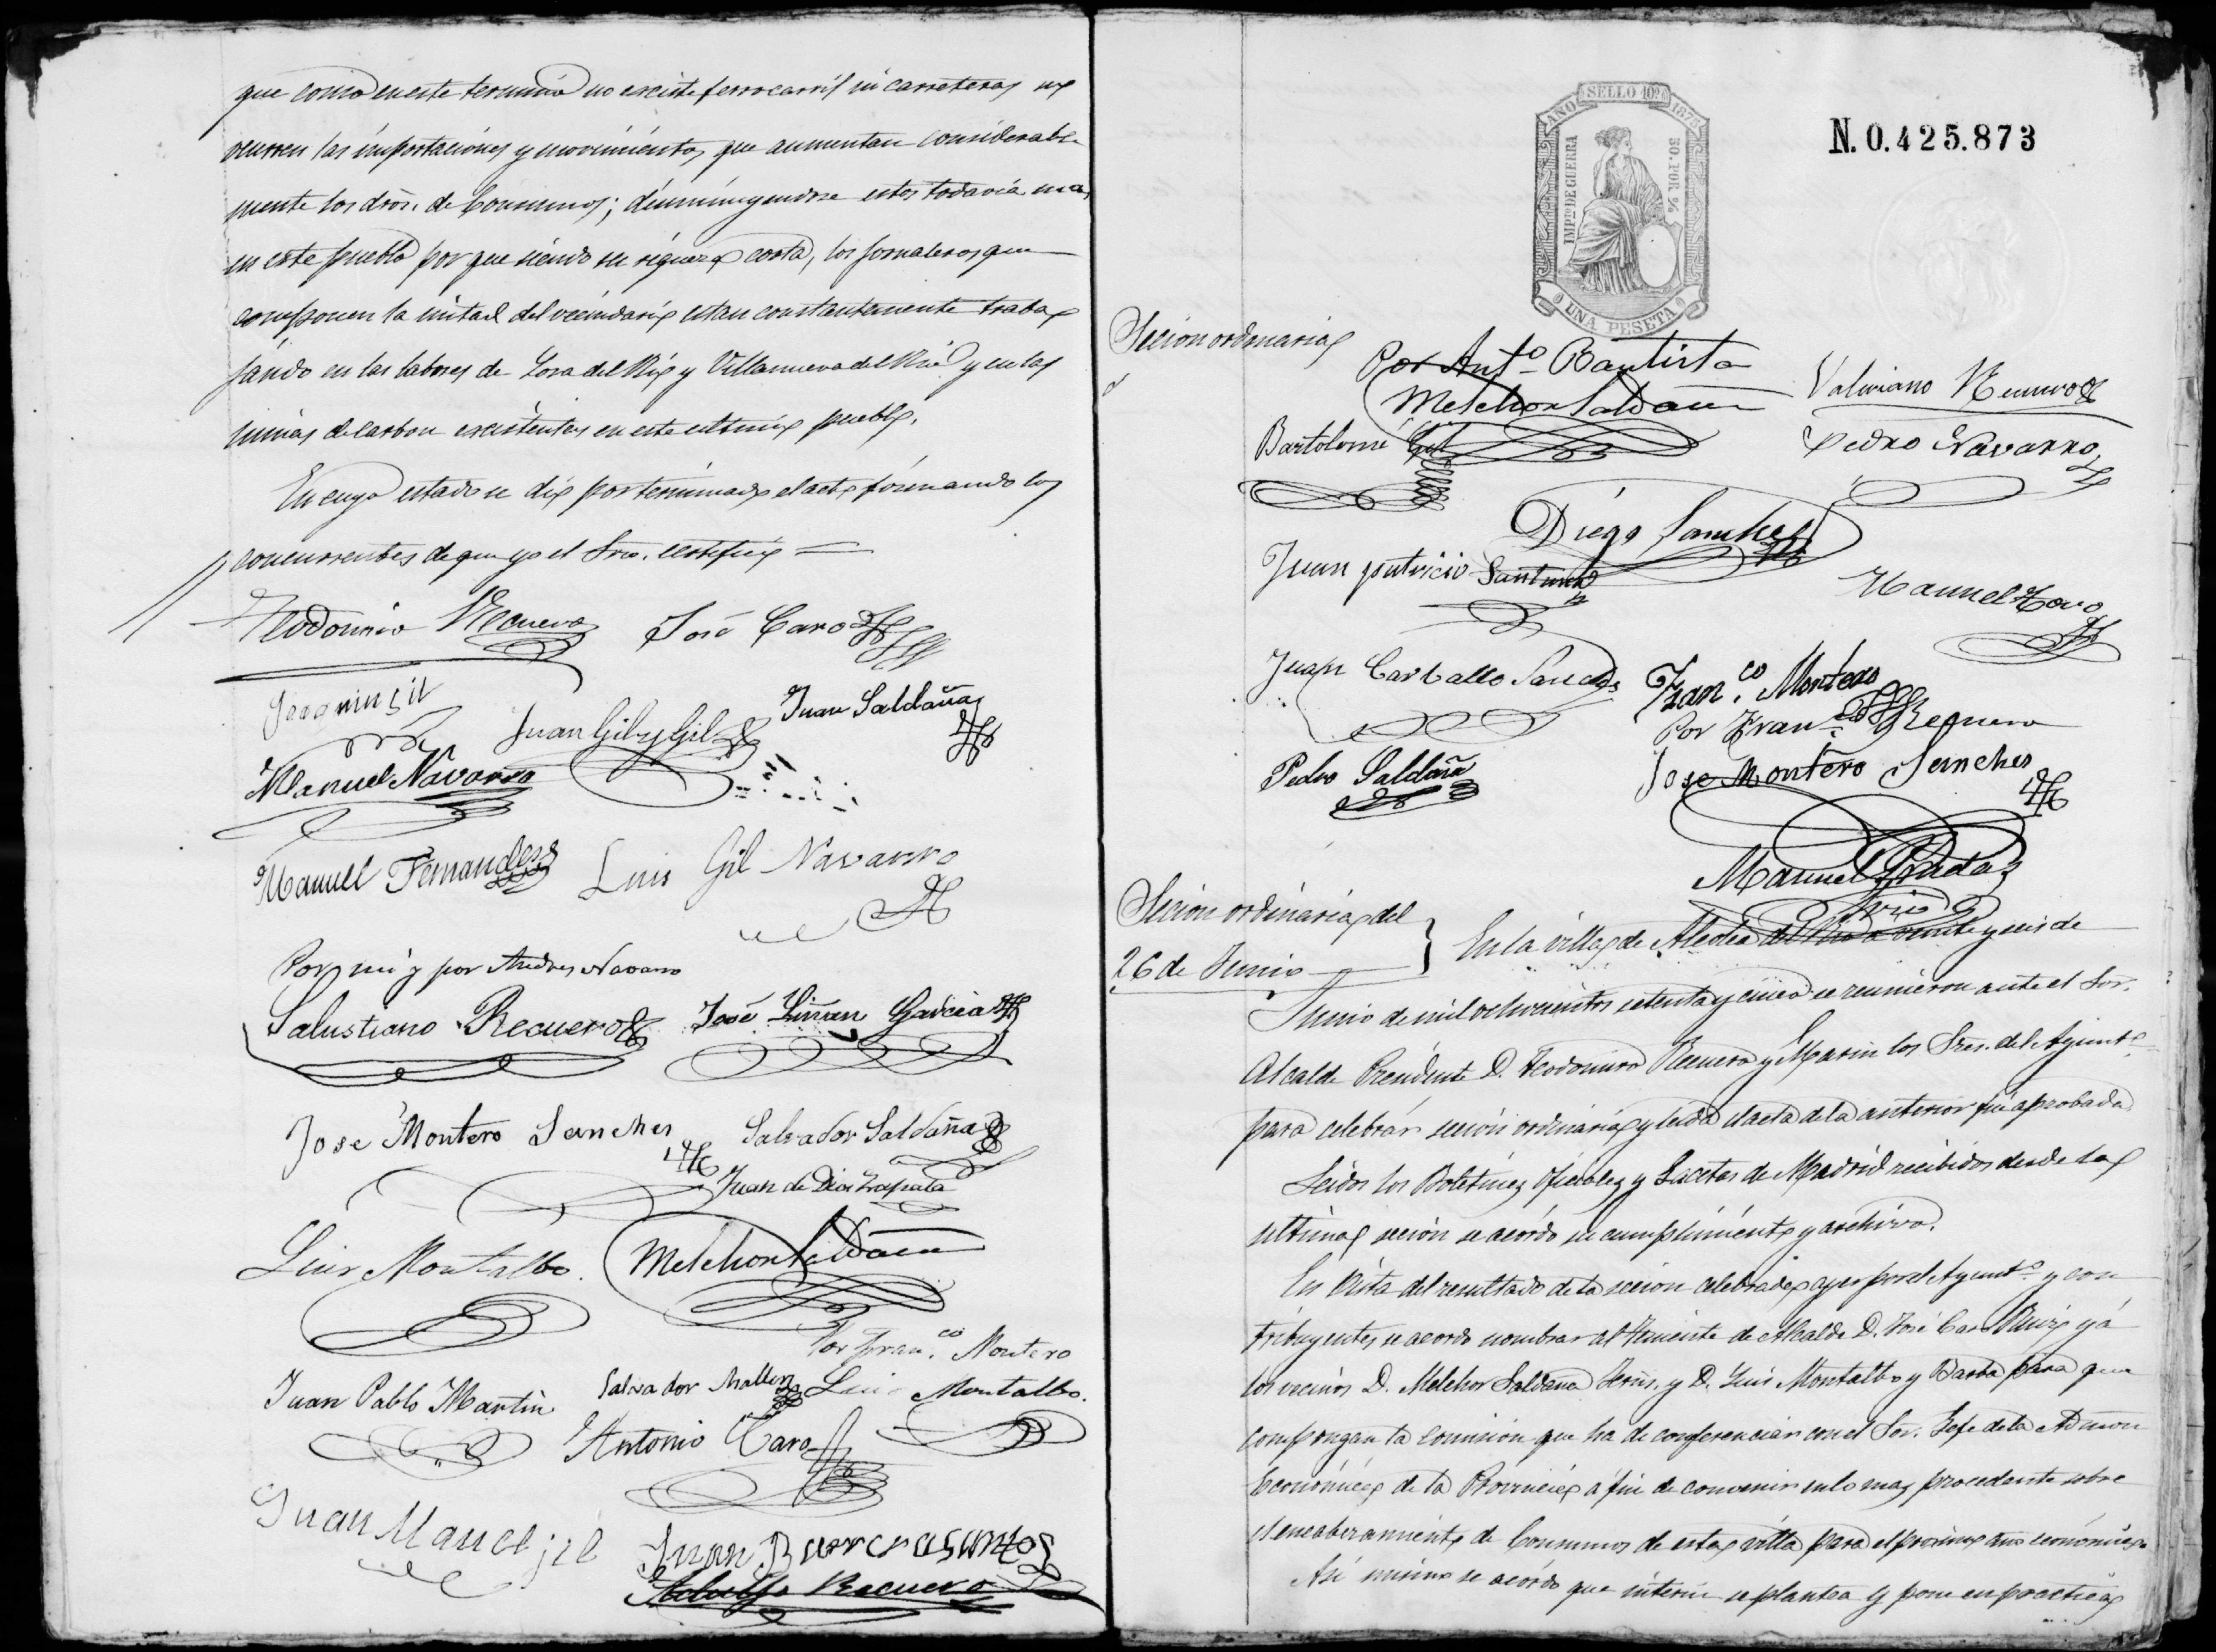 que como en este termino no existe ferrocarril ni carreteras no
ocurren las importaciones y movimientos que aumentan considerable
mente los dros. de Consumos; disminuyendose estos todavia mas
en este pueblo por que siendo su riqueza corta, los jornaleros que
componen la mitad del vecindario estan constantemente traba
jando en las labores de Lora del Rio y Villanueva del Rio y en las
minas de carbon existentes en este ultimo pueblo.
En cuyo estado se dio por terminado el acto firmando los
concurrentes de que yo el Srio. certifico =
Teodomiro Recuero José Caro
Joaquin gil
Juan Gil y Gil Juan Saldaña
Manuel Navarro
Manuel Fernandez Luis Gil Navarro
Por mi y por Andres Navarro
Salustiano Recuero José Liñan Garcia
Jose Montero Sanches Salvador Saldaña
Juan de Dios Zapata
Luis Montalbo Melchor Saldaña
Por Fran.co Montero
Juan Pablo Martin Salvador Luis Montalbo.
Antonio Caro
Juan Manuel jil
Juan
Adolfo Recuero
SELLO 10º
AÑO 1875
IMPTO DE GUERRA
50. POR %
UNA PESETA
N. 0.425.873
Secion ordinaria
Por Antº Bautista
Melchor Saldaña Valeriano Recuero
Bartolomé Gil Pedro Navarro
Diego Sanchez
Juan patricio Santana
Manuel Caro
Juan Carballo Sanches Fran.co Montero
Por Fran.co Requero
Pedro Saldaña Jose Montero Sanches
Manuel Rueda
Srio
Secion ordinaria del
26 de Junio
En la villa de Alcolea del Rio a veinte y seis de
Junio de mil ochocientos setenta y cinco se reunieron ante el Sor.
Alcalde Presidente D. Teodomiro Recuero y Marin los Sres. del Ayuntº
para celebrar secion ordinaria y leida el acta de la anterior fue aprobada
Leidos los Boletines Oficiales y Gacetas de Madrid recibidos desde la
ultima secion se acordo su cumplimiento y archivo.
En vista del resultado de la secion celebrada ayer por el Ayuntº y con
tribuyentes se acordo nombrar al Teniente de Alcalde D. José Caro Muñiz y á
los vecinos D. Melchor Saldaña y D. Luis Montalbo y Barba para que
compongan la comision que ha de conferenciar con el Sor. Gefe de la Admon
Económica de la Provincia á fin de convenir en lo mas procedente sobre
el encabezamiento de Consumos de esta villa para el proximo año económico
Asi mismo se acordo que interin se plantea y pone en practica